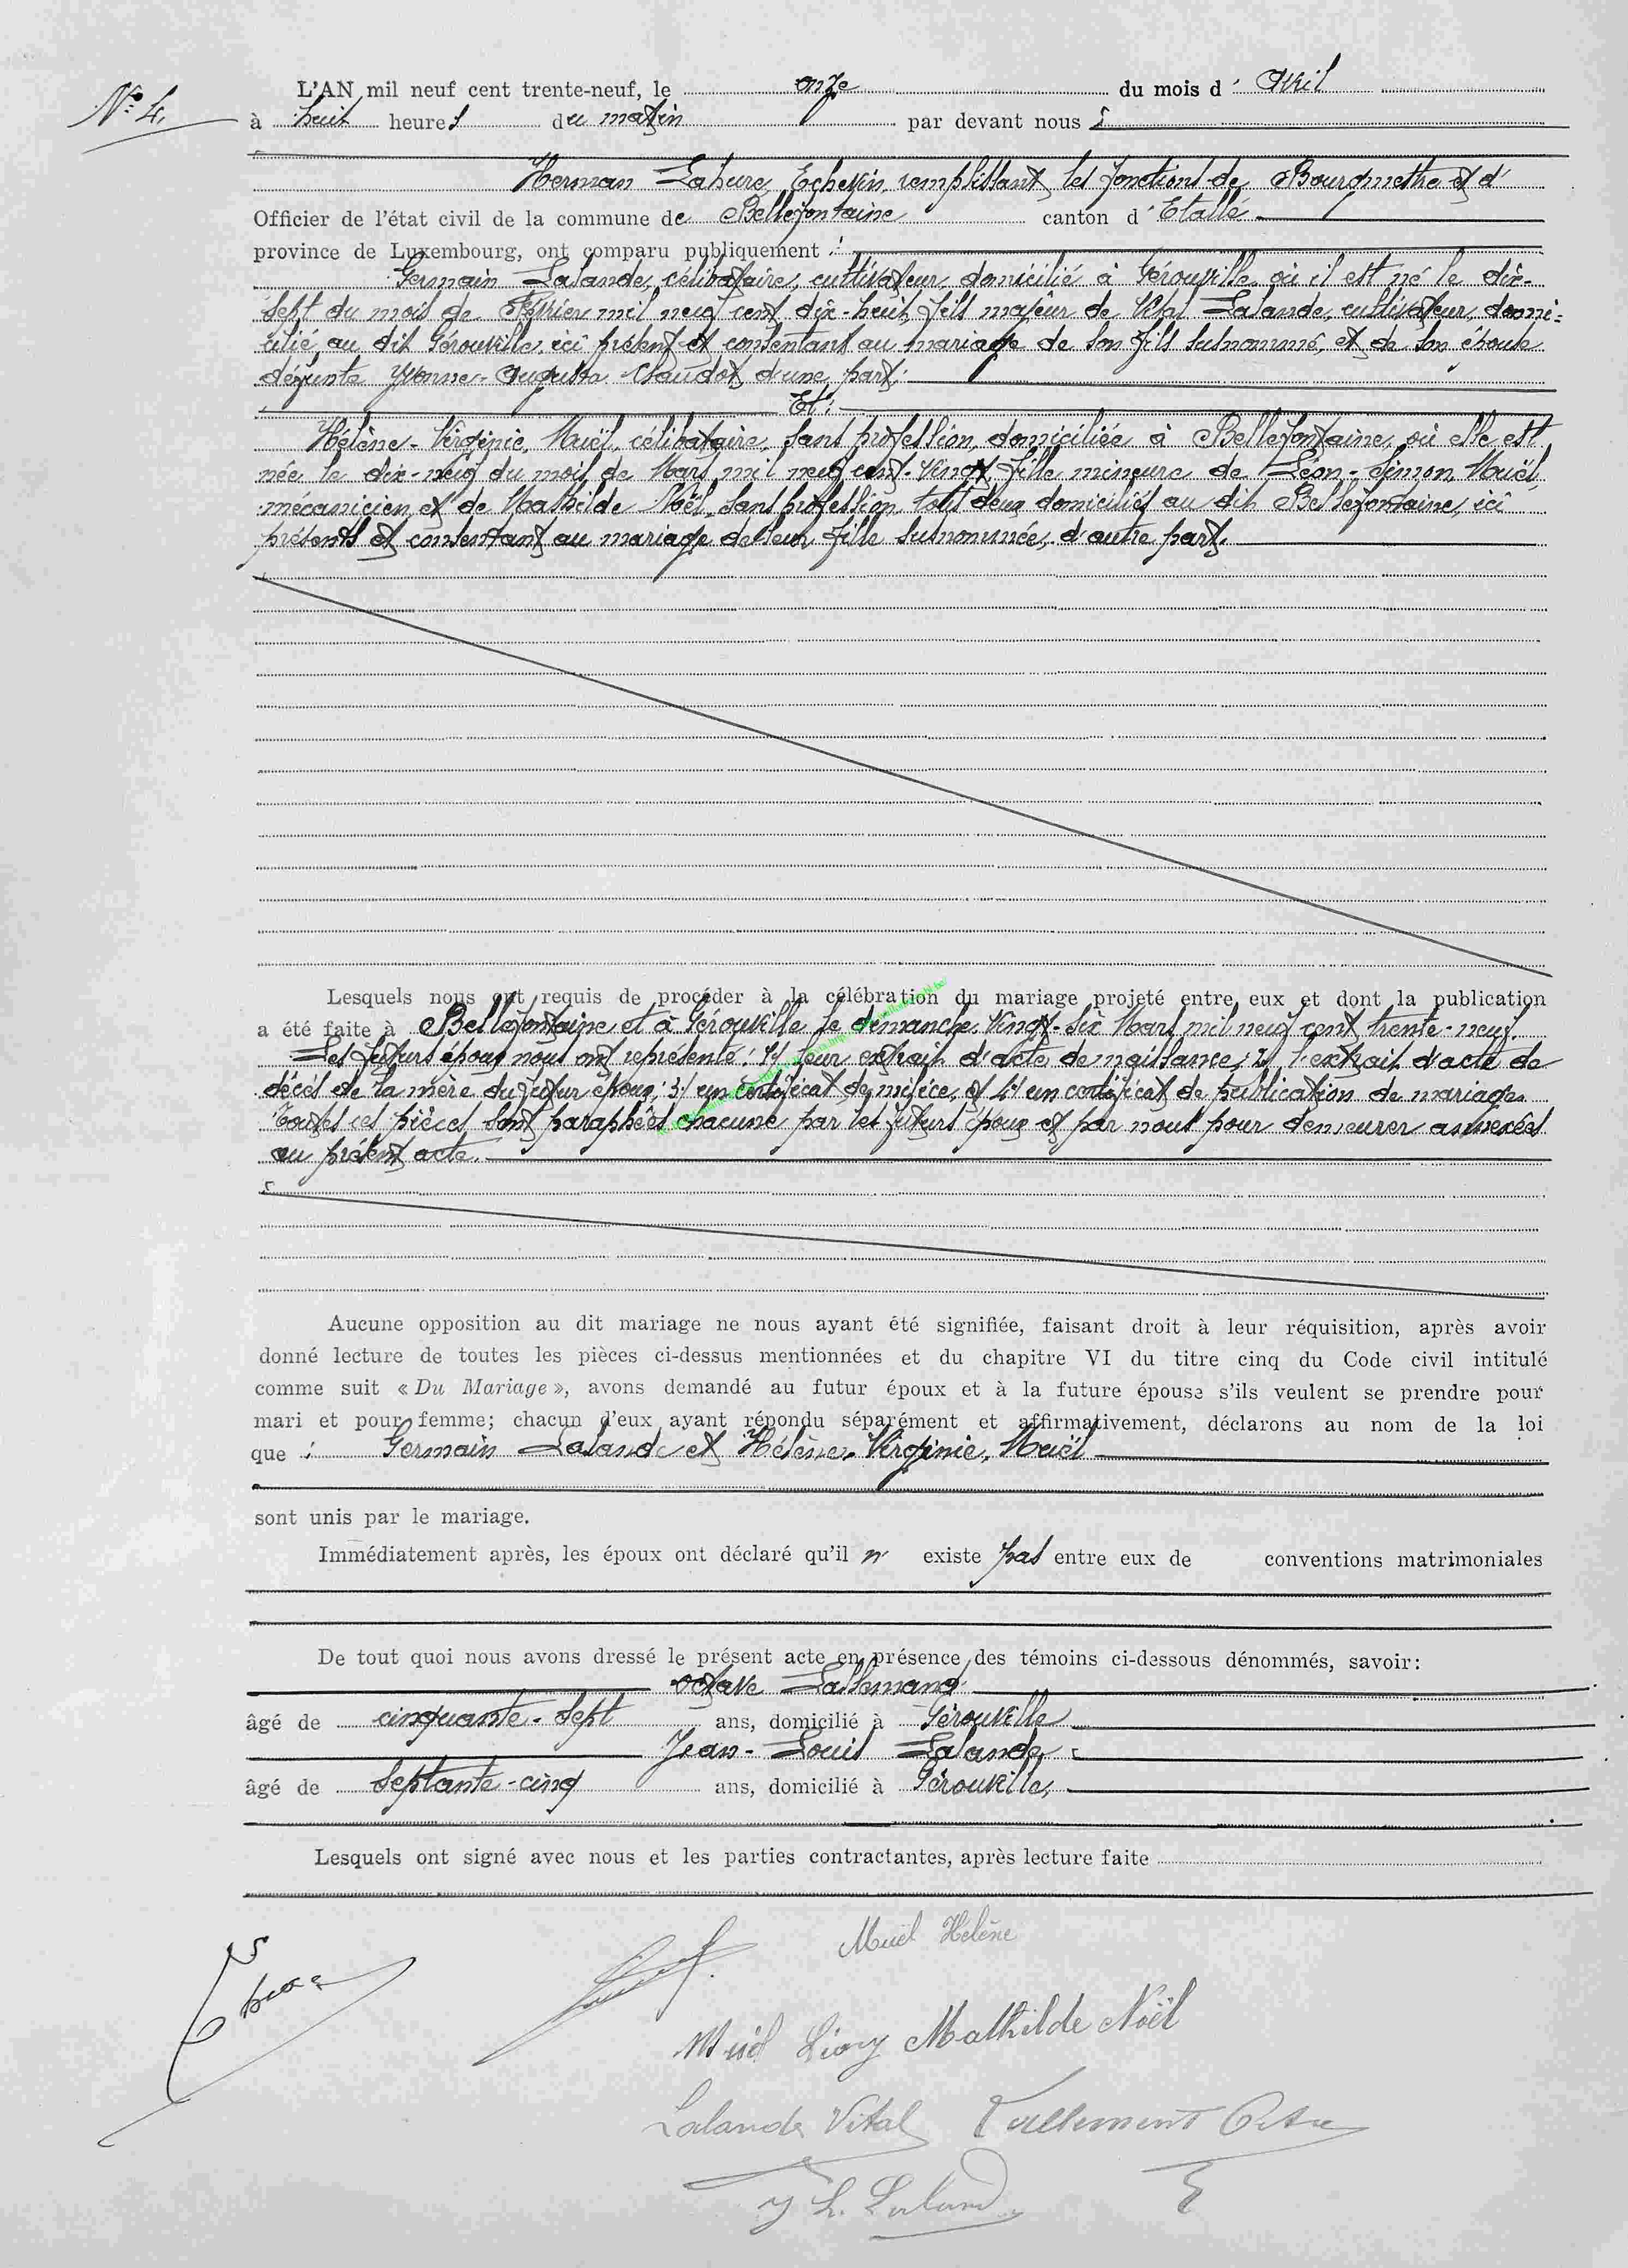 N° 4.
L'AN mil neuf cent trente-neuf, le onze du mois d' Avril
à huit heures du matin par devant nous
Herman Lahure, Echevin, remplissant les fonctions de Bourgmestre et d'
Officier de l'état civil de la commune de Bellefontaine canton d' Etalle
province de Luxembourg, ont comparu publiquement :
Germain Lalande, célibataire, cultivateur, domicilié à Gérouville où il est né le dix-
sept du mois de Février mil neuf cent dix-huit, fils majeur de Vital Lalande, cultivateur, domi=
cilié au dit Gérouville, ici présent et consentant au mariage de son fils susnommé, et de son épouse
défunte Yvonne-Augusta Claudot, d'une part;
Et:
Hélène-Virginie, Muël, célibataire, sans profession, domiciliée à Bellefontaine, où elle est
née le dix-neuf du mois de Mars mil neuf cent-vingt, fille mineure de Léon-Simon, Muël,
mécanicien et de Mathilde Noël, sans profession, tous deux domiciliés au dit Bellefontaine, ici
présents et consentant au mariage de leur fille susnommée, d'autre part.
Lesquels nous ont requis de procéder à la célébration du mariage projeté entre eux et dont la publication
a été faite à Bellefontaine et à Gérouville le dimanche vingt-six Mars mil neuf cent trente-neuf.
Les futurs époux nous ont représenté: 1/ leur extrait d'acte de naissance; 2/ l'extrait d'acte de
décès de la mère du futur époux; 3/ un certificat de milice, et 4/ un certificat de publication de mariage.
Toutes ces pièces sont paraphées chacune par les futurs époux et par nous pour demeurer annexées
au présent acte.
Aucune opposition au dit mariage ne nous ayant été signifiée, faisant droit à leur réquisition, après avoir
donné lecture de toutes les pièces ci-dessus mentionnées et du chapitre VI du titre cinq du Code civil intitulé
comme suit « Du Mariage », avons demandé au futur époux et à la future épouse s'ils veulent se prendre pour
mari et pour femme; chacun d'eux ayant répondu séparément et affirmativement, déclarons au nom de la loi
que : Germain Lalande et Hélène-Virginie, Muël
sont unis par le mariage.
Immédiatement après, les époux ont déclaré qu'il n' existe pas entre eux de conventions matrimoniales
De tout quoi nous avons dressé le présent acte en présence des témoins ci-dessous dénommés, savoir:
Octave Lallemand
âgé de cinquante-sept ans, domicilié à Gérouville
Jean-Louis Lalande,
âgé de septante-cinq ans, domicilié à Gérouville,
Lesquels ont signé avec nous et les parties contractantes, après lecture faite
Muël Hélène
Muël Léon Mathilde Noël
Lalande Vital Lallement Octave
J L. Laland